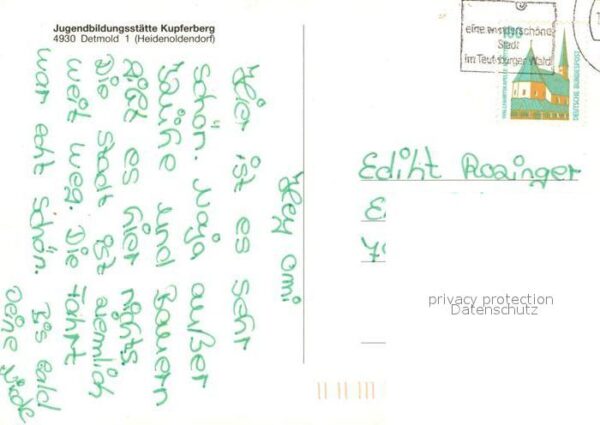 Jugendbildungsstätte Kupferberg
4930 Detmold 1 (Heidenoldendorf)
Hey Omi
Hier ist es sehr
schön. Naja außer
Kühe und Bauern
gibt es hier nichts.
Die Stadt ist ziemlich
weit weg. Die Fahrt
war echt schön.
Bis bald
Deine
eine wunderschöne
Stadt
im Teutoburger Wald
100
DEUTSCHE BUNDESPOST
Ediht Rosinger
E
7
privacy protection
Datenschutz